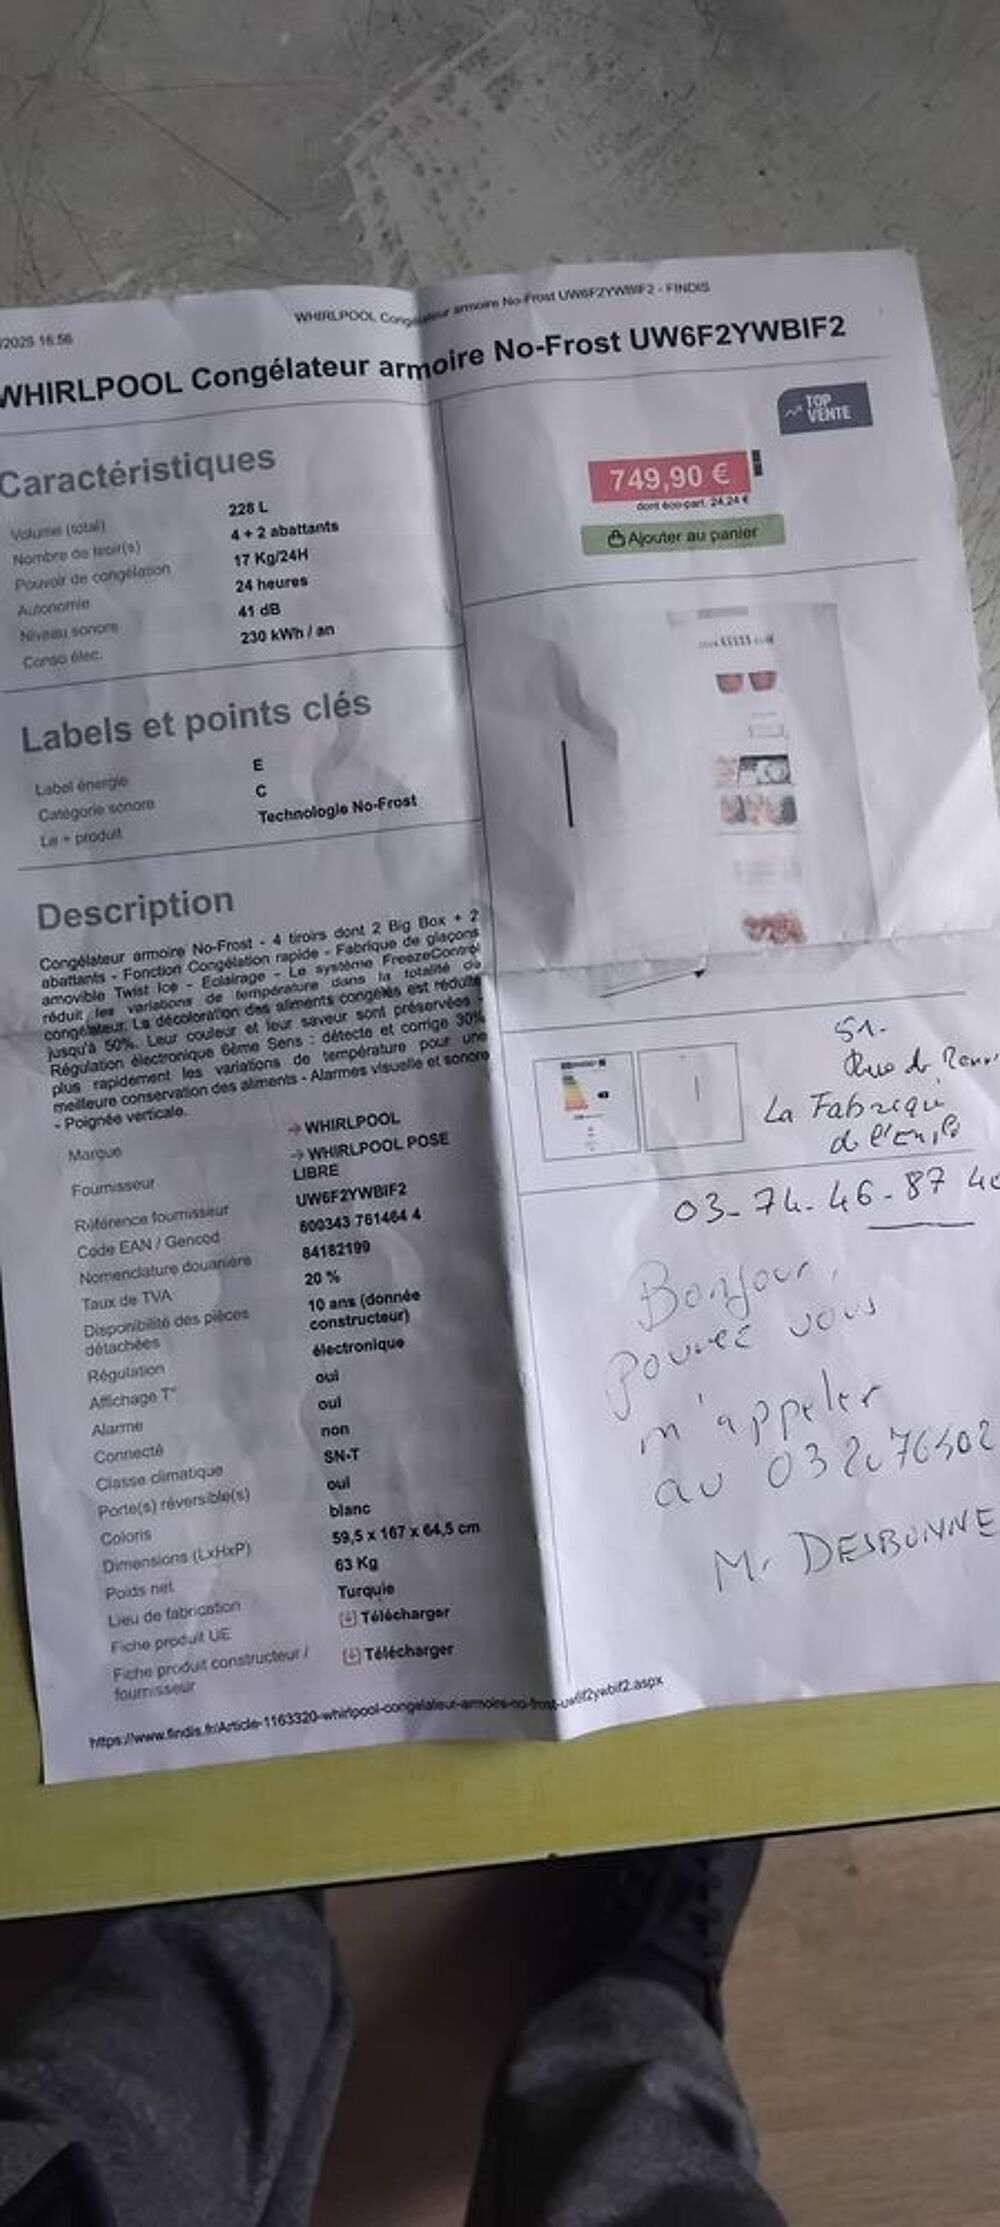 /2025 16:56
WHIRLPOOL Congélateur armoire No-Frost UW6F2YWBIF2 - FINDIS
WHIRLPOOL Congélateur armoire No-Frost UW6F2YWBIF2
TOP
VENTE
749,90 €
dont éco-part. 24,24 €
Ajouter au panier
Caractéristiques
Volume (total) 228 L
Nombre de tiroir(s) 4 + 2 abattants
Pouvoir de congélation 17 Kg/24H
Autonomie 24 heures
Niveau sonore 41 dB
Conso élec. 230 kWh / an
Labels et points clés
Label énergie E
Catégorie sonore C
Le + produit Technologie No-Frost
Description
Congélateur armoire No-Frost - 4 tiroirs dont 2 Big Box + 2
abattants - Fonction Congélation rapide - Fabrique de glaçons
amovible Twist Ice - Eclairage - Le système FreezeControl
réduit les variations de température dans la totalité du
congélateur. La décoloration des aliments congelés est réduite
jusqu'à 50%. Leur couleur et leur saveur sont préservées -
Régulation électronique 6ème Sens : détecte et corrige 30%
plus rapidement les variations de température pour une
meilleure conservation des aliments - Alarmes visuelle et sonore
- Poignée verticale.
Marque → WHIRLPOOL
Fournisseur → WHIRLPOOL POSE
LIBRE
Référence fournisseur UW6F2YWBIF2
Code EAN / Gencod 800343 761464 4
Nomenclature douanière 84182199
Taux de TVA 20 %
Disponibilité des pièces
détachées 10 ans (donnée
constructeur)
Régulation électronique
Affichage T° oui
Alarme oui
Connecté non
Classe climatique SN-T
Porte(s) réversible(s) oui
Coloris blanc
Dimensions (LxHxP) 59,5 x 167 x 64,5 cm
Poids net 63 Kg
Lieu de fabrication Turquie
Fiche produit UE Télécharger
Fiche produit constructeur /
fournisseur Télécharger
https://www.findis.fr/Article-1163320-whirlpool-congelateur-armoire-no-frost-uw6f2ywbif2.aspx
51.
Rue de
La Fabrique
de l'
03-74-46-87 40
Bonjour,
pouvez vous
m'appeler
au 03 20 76502
Mr DESBONNE